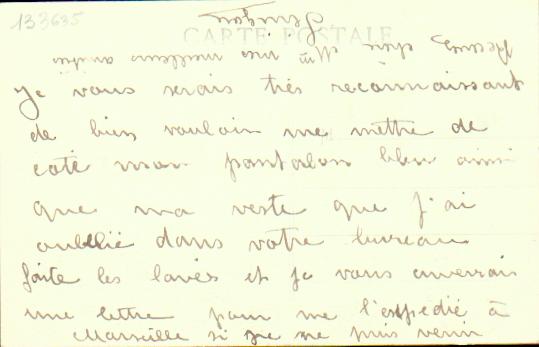 133635
CARTE POSTALE
Je vous serais très reconnaissant
de bien vouloir me mettre de
coté mon pantalon bleu ainsi
que ma veste que j'ai
oublié dans votre bureau
faite les lavés et je vous enverrais
une lettre pour me l'expedié à
Marseille si je ne puis venir
Recevez donc Mm mes meilleurs amitiés